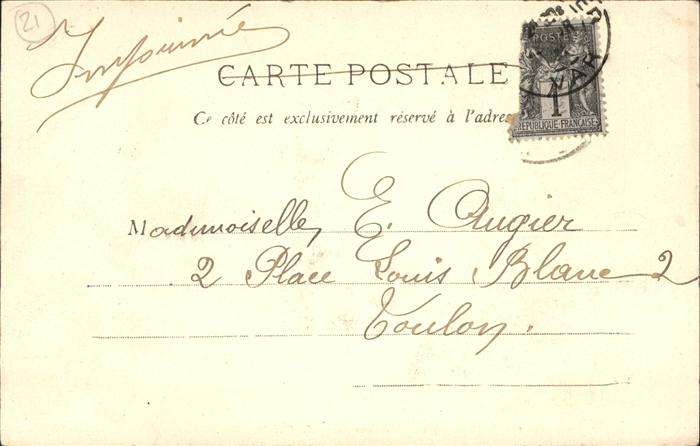 21
Imprimé
CARTE POSTALE
Ce côté est exclusivement réservé à l'adres
POSTE
1
RÉPUBLIQUE FRANÇAISE
VAR
Mademoiselle, E. Augier
2 Place Louis Blanc 2
Toulon.